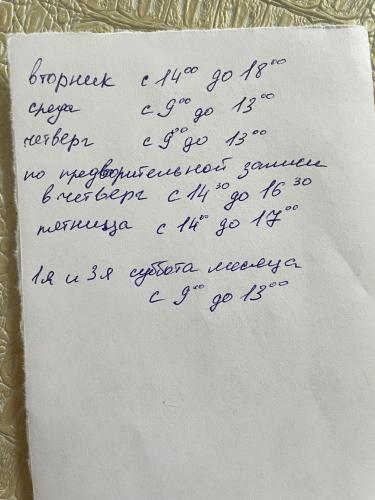 вторник с 14⁰⁰ до 18⁰⁰
среда с 9⁰⁰ до 13⁰⁰
четверг с 9⁰⁰ до 13⁰⁰
по предворительной записи
в четверг с 14³⁰ до 16³⁰
пятницца с 14⁰⁰ до 17⁰⁰
1я и 3я суббота месяца
с 9⁰⁰ до 13⁰⁰